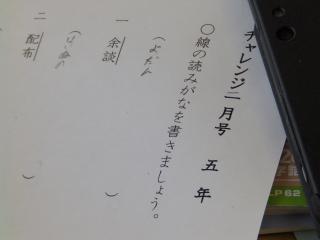 チャレンジ二月号 五年
○線の読みがなを書きましょう。
一 余談
(よだん )
二 配布
( )
LP62